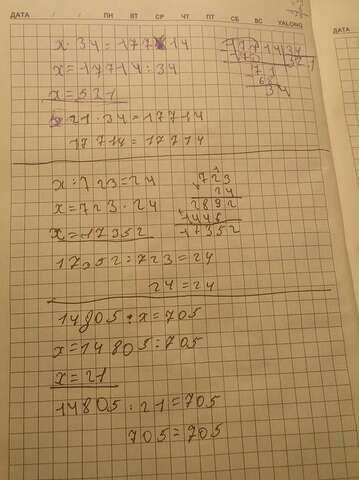 ДАТА / / ПН ВТ СР ЧТ ПТ СБ ВС YALONG
ДАТА
x · 34 = 17714
x = 17714 : 34
x = 521
521 · 34 = 17714
17714 = 17714
17714 34
170 521
71
68
34
x : 723 = 24
x = 723 · 24
x = 17352
17352 : 723 = 24
24 = 24
723
24
2892
1446
17352
14805 : x = 705
x = 14805 : 705
x = 21
14805 : 21 = 705
705 = 705